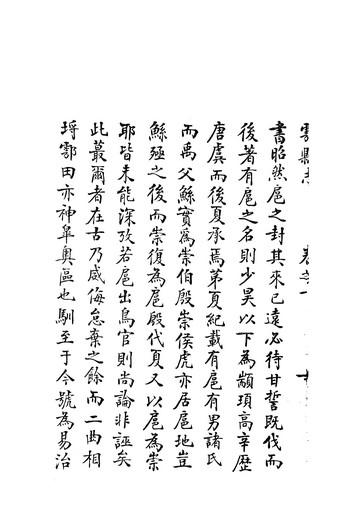 鄠縣志 卷之一
書昭然扈之封其來已遠必待甘誓既伐而
後著有扈之名則少昊以下為顓頊高辛歷
唐虞而後夏承焉第夏紀載有扈有男諸氏
而禹父鯀實為崇伯殷崇侯虎亦居扈地豈
鯀殛之後而崇復為扈殷代夏又以扈為崇
耶皆未能深攷若扈出鳥官則尚論非誣矣
此蕞爾者在古乃威侮怠棄之餘而二曲相
埒鄠田亦神臯奥區也馴至于今號為易治